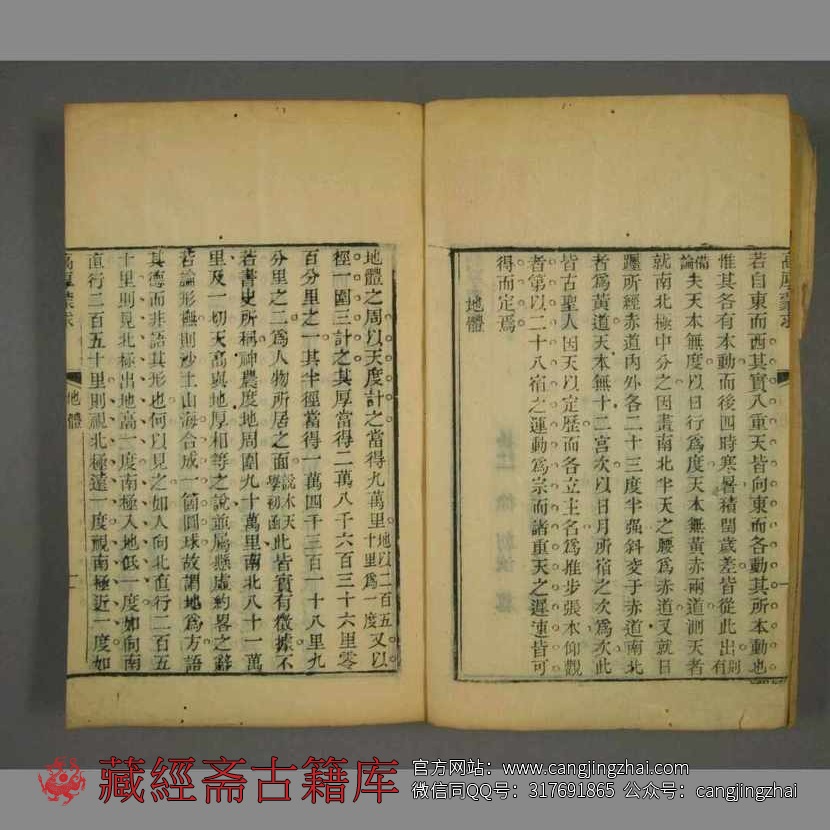 高厚蒙求
若自東而西其實八重天皆向東而各動其所本動也
惟其各有本動而後四時寒暑積閏歲差皆從此出有則
備論夫天本無度以日行為度天本無黃赤兩道測天者
就南北極中分之因畫南北半天之腰為赤道又就日
躔所經赤道內外各二十三度半强斜交于赤道南北
者為黃道天本無十二宮次以日月所宿之次為次此
皆古聖人因天以定歷而各立主名為推步張本仰觀
者第以二十八宿之運動為宗而諸重天之遲速皆可
得而定焉
地體
地體之周以天度計之當得九萬里地以二百五十里為一度又以
徑一圍三計之其厚當得二萬八千六百三十六里零
百分里之一其半徑當得一萬四千三百一十八里九
分里之二為人物所居之面說本天學初函此皆實有徵據不
若書史所稱神農度地周圍九十萬里南北八十一萬
里及一切天高與地厚相等之說並屬懸虛約畧之辭
若論形軀則沙土山海合成一箇圓球故謂地為方語
其德而非語其形也何以見之如人向北直行二百五
十里則見北極出地高一度南極入地低一度如向南
直行二百五十里則視北極遠一度視南極近一度如
高厚蒙求
地體
藏經斋古籍库
官方网站：www.cangjingzhai.com
微信同QQ号：317691865 公众号：cangjingzhai